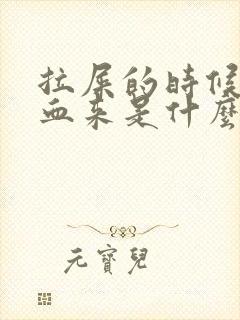 拉屎的時候
血来是什麼
元寶兒